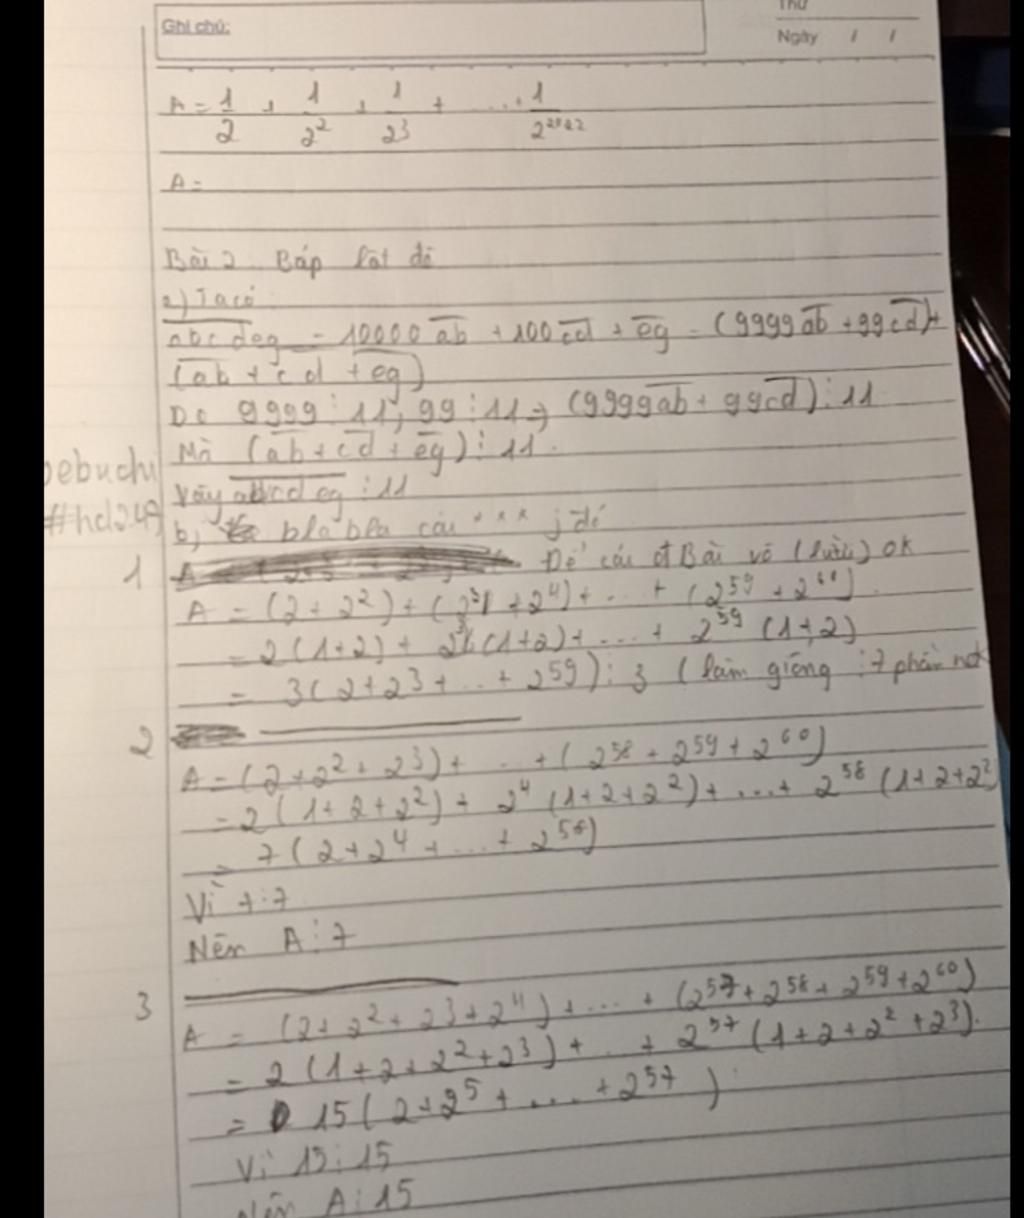 Ghi chú:
Thứ
Ngày / /
A = 1/2 + 1/2² + 1/2³ + ... + 1/2²⁰²²
A =
Bài 2. Báp lật đề
a) Ta có
abcdeg = 10000ab + 100cd + eg = (9999ab + 99cd) +
(ab + cd + eg)
Do 9999 ⋮ 11, 99 ⋮ 11 ⇒ (9999ab + 99cd) ⋮ 11
Mà (ab + cd + eg) ⋮ 11.
Vậy abcdeg ⋮ 11
#hd249
b, bla bla cái * * * j đó
1
Đề cái đ Bài vô (lười) ok
A = (2 + 2²) + (2³ + 2⁴) + ... + (2⁵⁹ + 2⁶⁰)
= 2(1+2) + 2³(1+2) + ... + 2⁵⁹(1+2)
= 3(2 + 2³ + ... + 2⁵⁹) ⋮ 3 (làm giống ⋮ 7 phần
2
A = (2 + 2² + 2³) + ... + (2⁵⁸ + 2⁵⁹ + 2⁶⁰)
= 2(1 + 2 + 2²) + 2⁴(1 + 2 + 2²) + ... + 2⁵⁸(1 + 2 + 2²)
= 7(2 + 2⁴ + ... + 2⁵⁸)
Vì 7 ⋮ 7
Nên A ⋮ 7
3
A = (2 + 2² + 2³ + 2⁴) + ... + (2⁵⁷ + 2⁵⁸ + 2⁵⁹ + 2⁶⁰)
= 2(1 + 2 + 2² + 2³) + ... + 2⁵⁷(1 + 2 + 2² + 2³).
= 15(2 + 2⁵ + ... + 2⁵⁷)
Vì 15 ⋮ 15
Nên A ⋮ 15